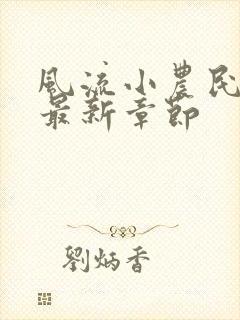 風流小農民
最新章節
劉炳香